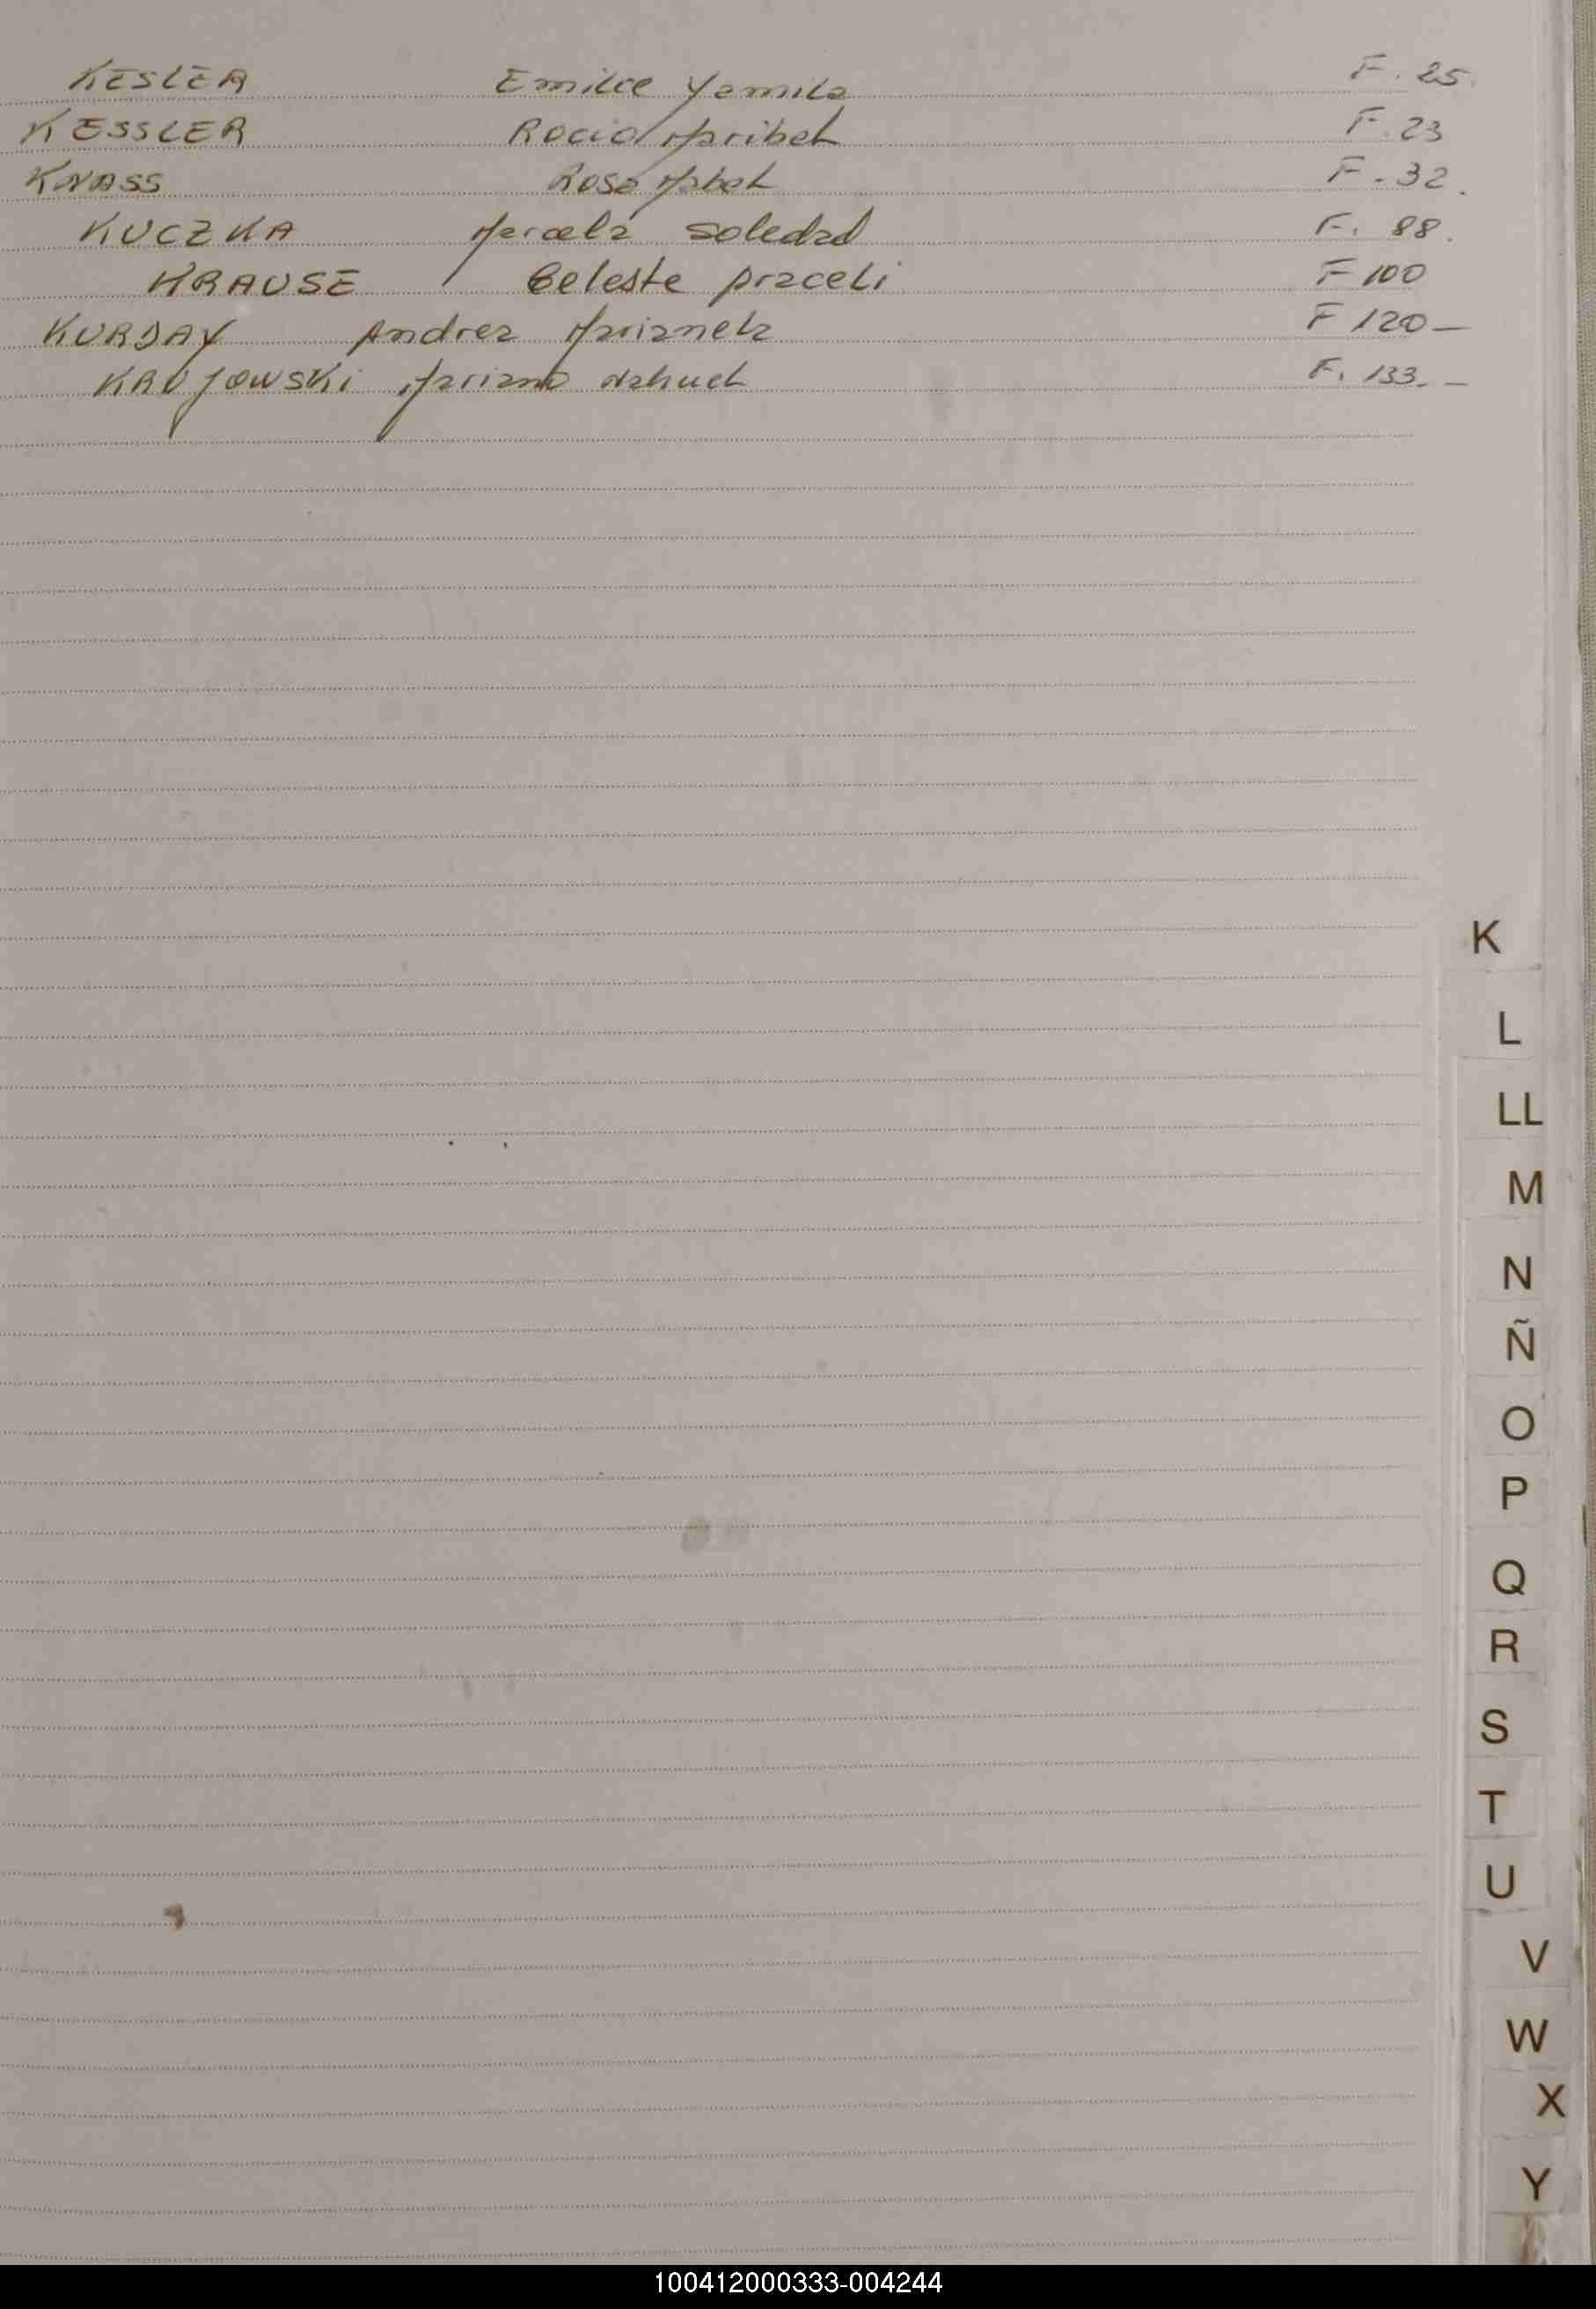 KESLER Emilce Yamila F. 25
KESSLER Rocio Maribel F. 23
KNASS Rosa Mabel F. 32.
KUCZKA Marcela Soledad F. 88.
KRAUSE Celeste Araceli F 100
KURDAY Andrea Marianela F 120 —
Mariano Nahuel F. 133. —
K
L
LL
M
N
Ñ
O
P
Q
R
S
T
U
V
W
X
Y
100412000333-004244